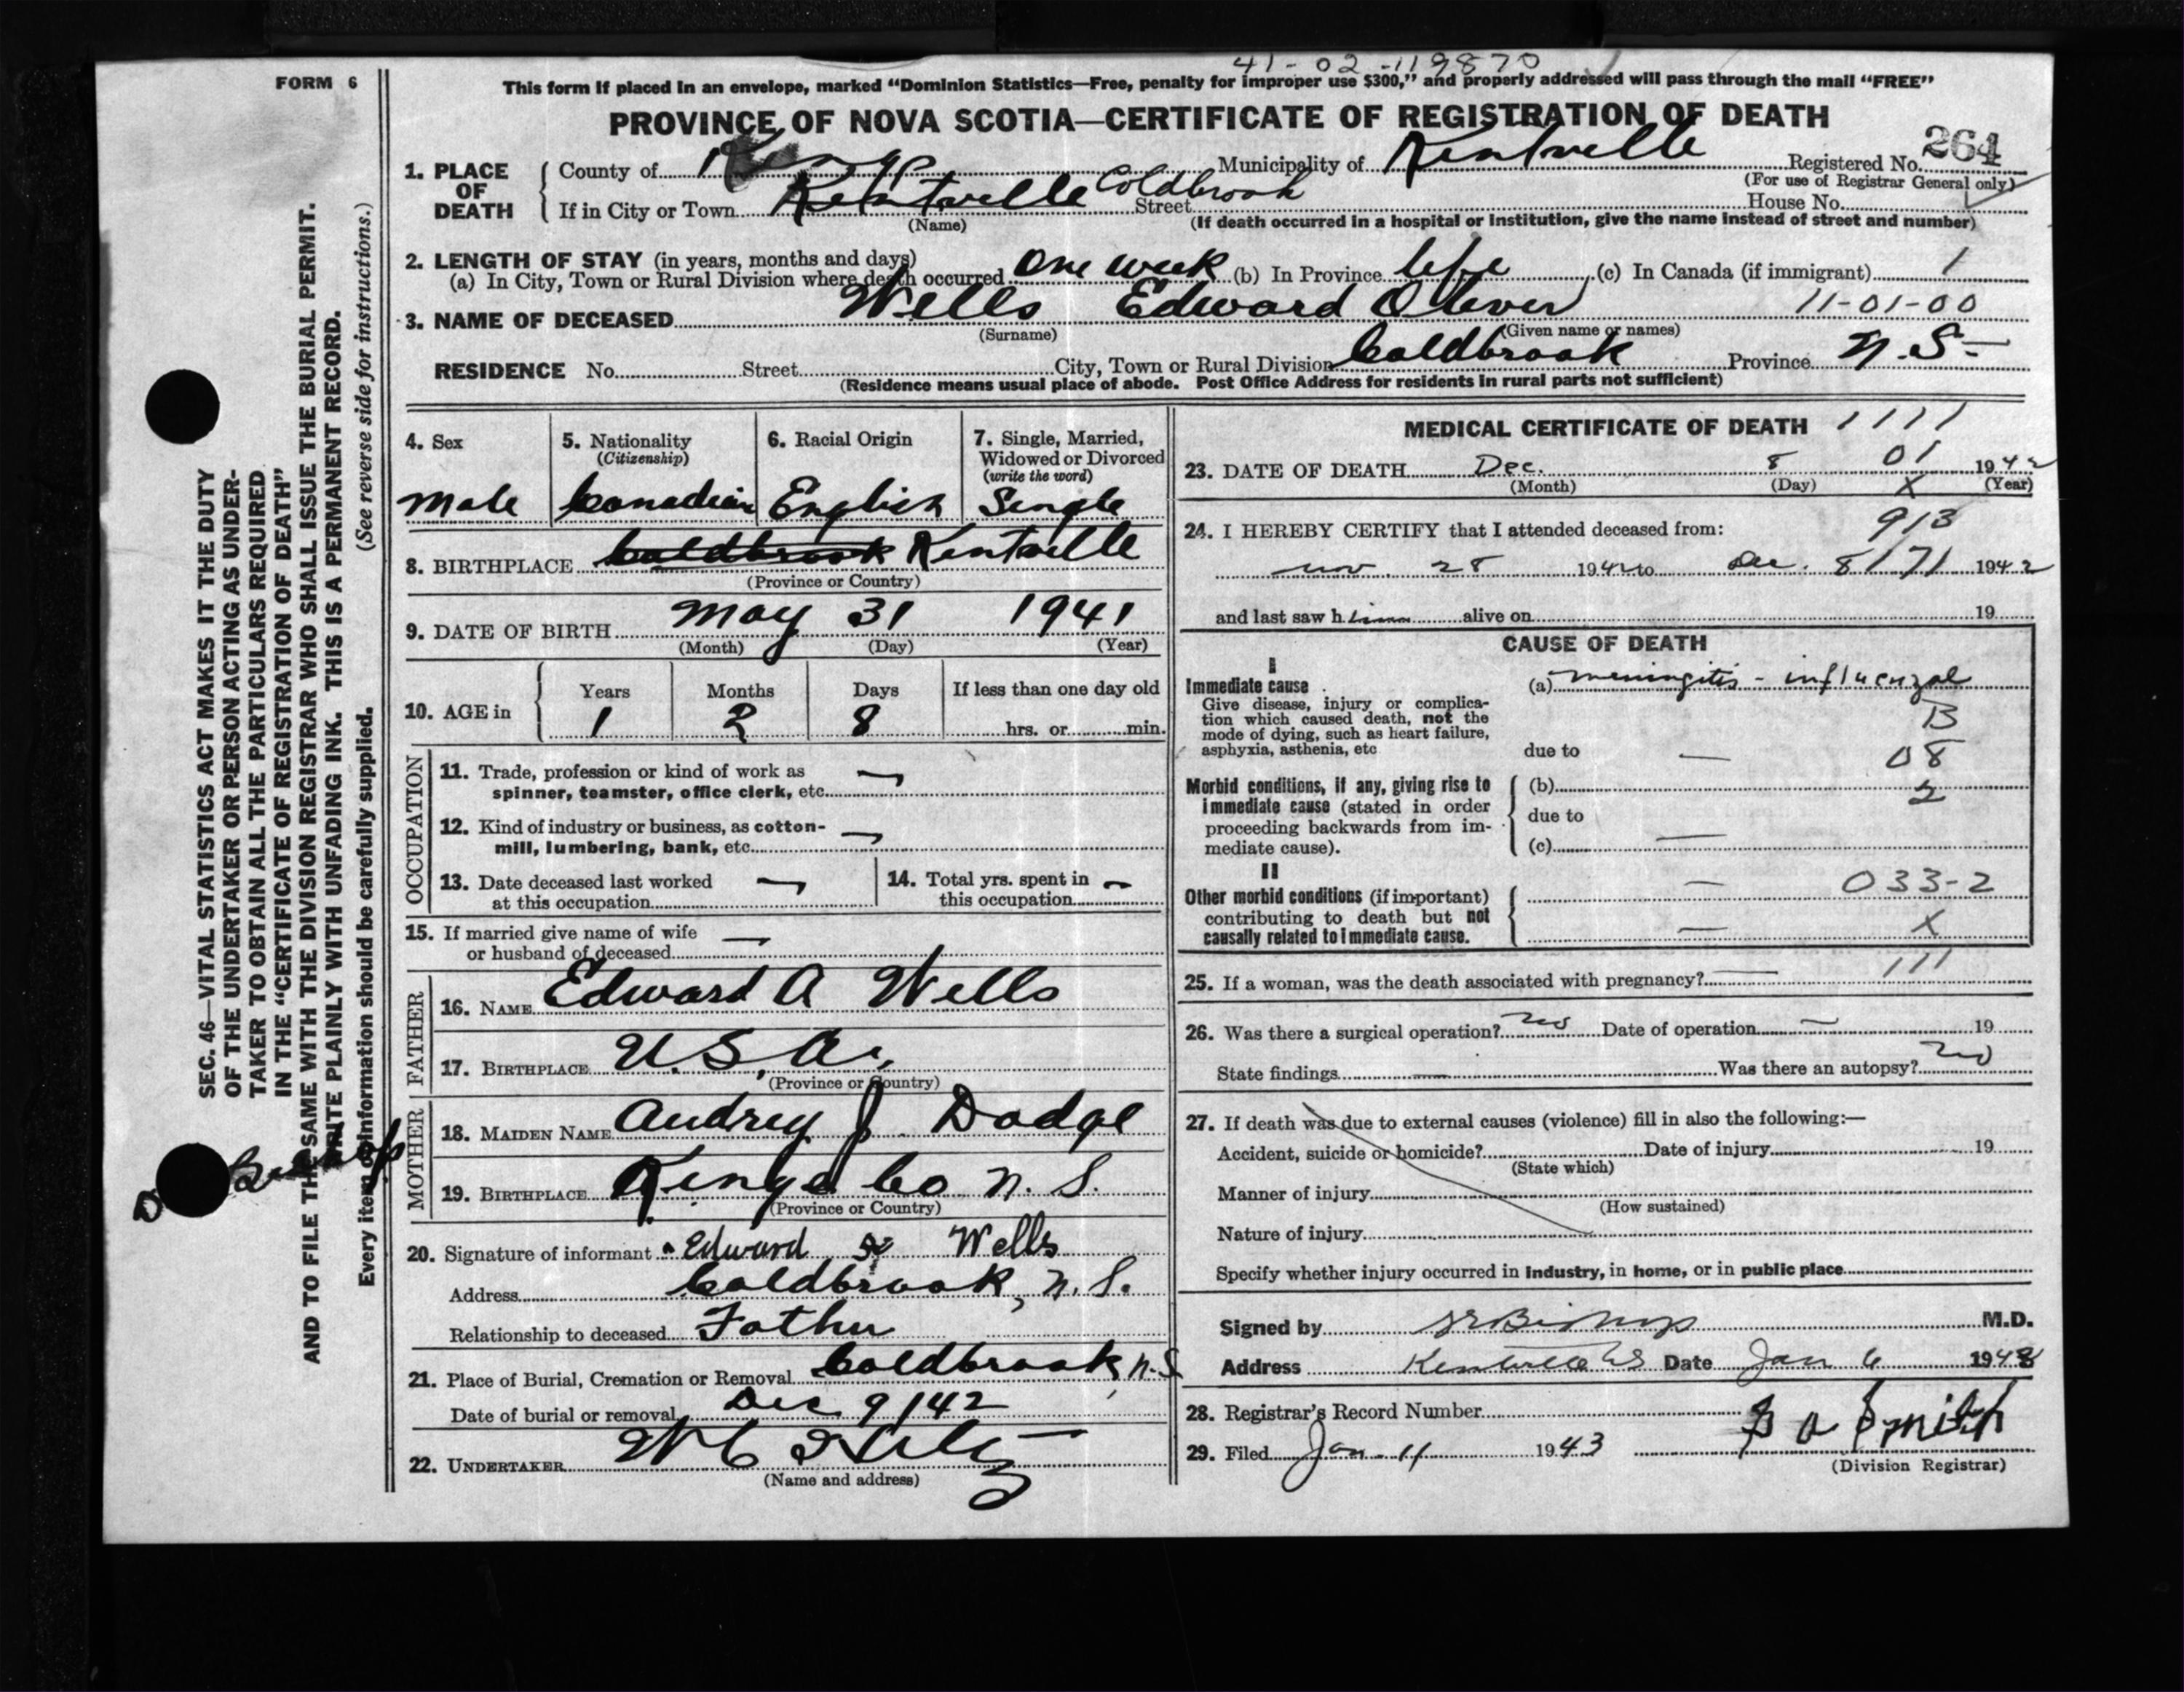 41-02-119870
FORM 6
This form if placed in an envelope, marked “Dominion Statistics—Free, penalty for improper use $300,” and properly addressed will pass through the mail “FREE”
PROVINCE OF NOVA SCOTIA—CERTIFICATE OF REGISTRATION OF DEATH
1. PLACE OF DEATH
County of Kings Municipality of Kentville Registered No. 264
(For use of Registrar General only)
If in City or Town Kentville Coldbrook Street House No.
(Name) (If death occurred in a hospital or institution, give the name instead of street and number)
2. LENGTH OF STAY (in years, months and days)
(a) In City, Town or Rural Division where death occurred One week (b) In Province life (c) In Canada (if immigrant) 1
3. NAME OF DECEASED Wells Edward Oliver 11-01-00
(Surname) (Given name or names)
RESIDENCE No. Street City, Town or Rural Division Coldbrook Province N.S.
(Residence means usual place of abode. Post Office Address for residents in rural parts not sufficient)
4. Sex 5. Nationality 6. Racial Origin 7. Single, Married,
(Citizenship) Widowed or Divorced
(write the word)
Male Canadian English Single
8. BIRTHPLACE Coldbrook Kentville
(Province or Country)
9. DATE OF BIRTH May 31 1941
(Month) (Day) (Year)
10. AGE in Years Months Days If less than one day old
1 2 8 hrs. or min.
OCCUPATION
11. Trade, profession or kind of work as —
spinner, teamster, office clerk, etc.
12. Kind of industry or business, as cotton- —
mill, lumbering, bank, etc.
13. Date deceased last worked — 14. Total yrs. spent in —
at this occupation this occupation
15. If married give name of wife —
or husband of deceased
FATHER
16. NAME Edward A Wells
17. BIRTHPLACE U.S.A.
(Province or Country)
MOTHER
18. MAIDEN NAME Audrey J Dodge
19. BIRTHPLACE Kings Co N.S.
(Province or Country)
20. Signature of informant Edward Wells
Address Coldbrook, N.S.
Relationship to deceased Father
21. Place of Burial, Cremation or Removal Coldbrook, N.S
Date of burial or removal Dec 9/42
22. UNDERTAKER
(Name and address)
MEDICAL CERTIFICATE OF DEATH 1111
23. DATE OF DEATH Dec. 8 01 1942
(Month) (Day) X (Year)
24. I HEREBY CERTIFY that I attended deceased from: 913
Nov. 28 1942 to Dec. 8/71 1942
and last saw him alive on 19
CAUSE OF DEATH
I
Immediate cause (a) meningitis - influenzal
Give disease, injury or complica-
tion which caused death, not the B
mode of dying, such as heart failure,
asphyxia, asthenia, etc due to — 08
Morbid conditions, if any, giving rise to (b) 2
immediate cause (stated in order
proceeding backwards from im- due to
mediate cause). (c) —
II
Other morbid conditions (if important) — 033-2
contributing to death but not
causally related to immediate cause. — X
25. If a woman, was the death associated with pregnancy? — 111
26. Was there a surgical operation? no Date of operation — 19
State findings — Was there an autopsy? no
27. If death was due to external causes (violence) fill in also the following:—
Accident, suicide or homicide? Date of injury 19
(State which)
Manner of injury
(How sustained)
Nature of injury
Specify whether injury occurred in industry, in home, or in public place
Signed by Bishop M.D.
Address Kentville NS Date Jan 6 1943
28. Registrar's Record Number
29. Filed Jan. 11 1943 Smith
(Division Registrar)
SEC. 46—VITAL STATISTICS ACT MAKES IT THE DUTY
OF THE UNDERTAKER OR PERSON ACTING AS UNDER-
TAKER TO OBTAIN ALL THE PARTICULARS REQUIRED
IN THE “CERTIFICATE OF REGISTRATION OF DEATH”
AND TO FILE THE SAME WITH THE DIVISION REGISTRAR WHO SHALL ISSUE THE BURIAL PERMIT.
WRITE PLAINLY WITH UNFADING INK. THIS IS A PERMANENT RECORD.
Every item of information should be carefully supplied. (See reverse side for instructions.)
D Bishop